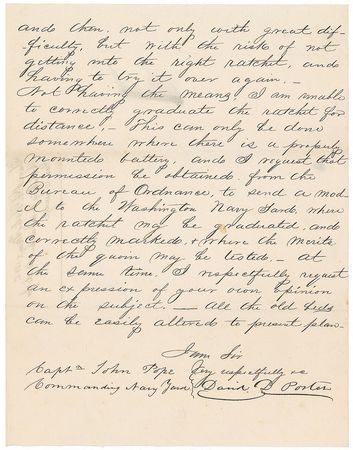 and then, not only with great dif-
ficulty, but with the risk of not
getting into the right ratchet, and
having to try it over again. -
Not having the means, I am unable
to correctly graduate the ratchet for
distance, - This can only be done
somewhere where there is a properly
mounted battery, and I request that
permission be obtained, from the
Bureau of Ordnance, to send a mod-
el to the Washington Navy Yard, where
the ratchet may be graduated, and
correctly marked, & where the merits
of the quoin may be tested. - At
the same time, I respectfully request
an expression of your own opinion
on the subject. - All the old beds
can be easily altered to present plan.
I am Sir
Capt. John Pope Very respectfully
Commanding Navy Yard David D Porter